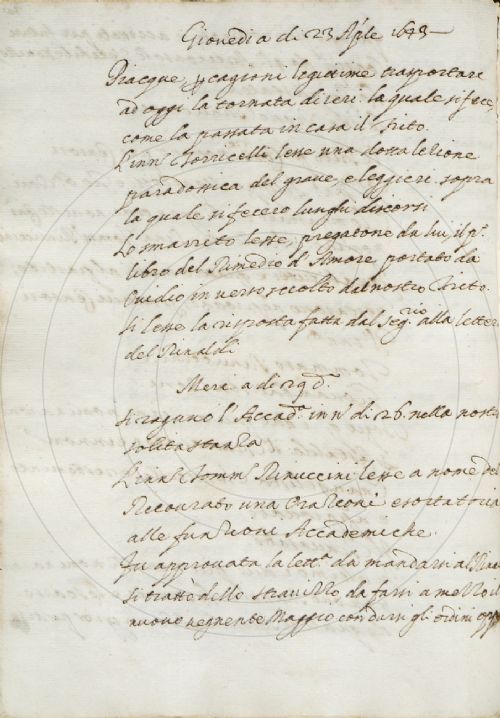 Giovedi a di 23 Aple 1643
Piacque, p cagioni legitime trasportare
ad oggi la tornata di ieri la quale si fece,
come la passata in casa il Trito.
L'inn. Torricelli lesse una dotta lezione
paradossica del grave, e leggieri sopra
la quale si fecero lunghi discorsi
Lo smarrito lesse, pregatone da lui, il p.
libro del Rimedio d'Amore portato da
Ovidio in verso sciolto dal nostro Trito.
Si lesse la risposta fatta dal Segrio alla lettera
del Rinaldi
Mere a di 29 d.
Si ragunò l'Accad. in n. di 26. nella nostra
solita stanza
L'inn. Tomm. Rinuccini lesse a nome del
una Orazioni esortatoria
alle funzioni Accademiche.
Fu approvata la lett. da mandarsi al
Si trattò dello stravizzo, da farsi a mezzo il
nuovo vegnente Maggio con darsi gli ordini opp